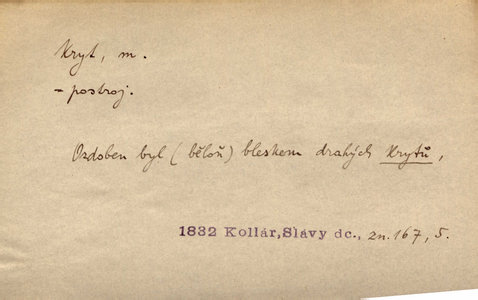 Kryt, m.
- postroj.
Ozdoben byl (běloň) bleskem drahých Krytů,
1832 Kollár,Slávy dc., zn.167, 5.